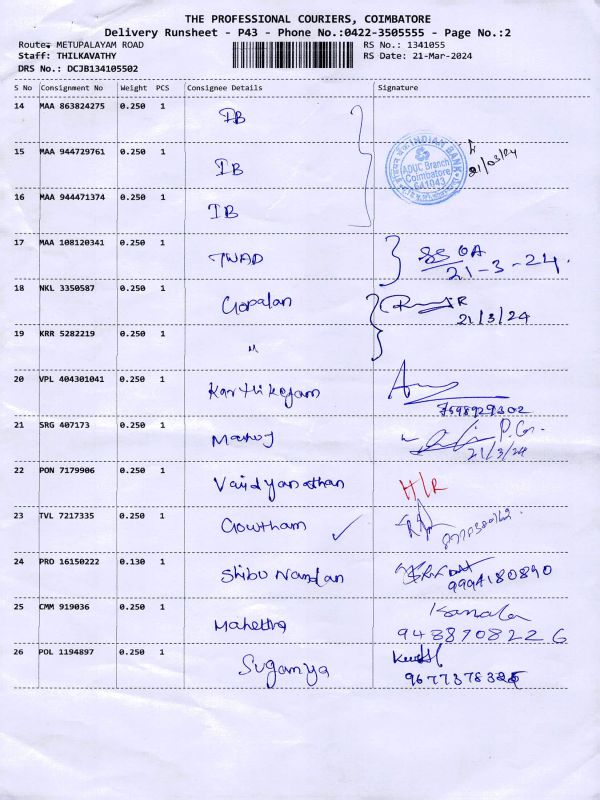 THE PROFESSIONAL COURIERS, COIMBATORE
Delivery Runsheet - P43 - Phone No.:0422-3505555 - Page No.:2
Route: METUPALAYAM ROAD RS No.: 1341055
Staff: THILKAVATHY RS Date: 21-Mar-2024
DRS No.: DCJB134105502
S No Consignment No Weight PCS Consignee Details Signature
14 MAA 863824275 0.250 1 IB
15 MAA 944729761 0.250 1 IB
INDIAN BANK
ADUC Branch
Coimbatore
641043
21/03/24
16 MAA 944471374 0.250 1 IB
17 MAA 108120341 0.250 1 TWAD
21-3-24.
18 NKL 3350587 0.250 1 Gopalan
21/3/24
19 KRR 5282219 0.250 1 "
20 VPL 404301041 0.250 1 Karthikeyam
7598929302
21 SRG 407173 0.250 1 Manoj
21/3/24
22 PON 7179906 0.250 1 Vaidyanathan H/R
23 TVL 7217335 0.250 1 Gowtham
24 PRO 16150222 0.130 1 Shibu Nandan
9994180890
25 CMM 919036 0.250 1 Kamala
9438708226
26 POL 1194897 0.250 1 Suganya